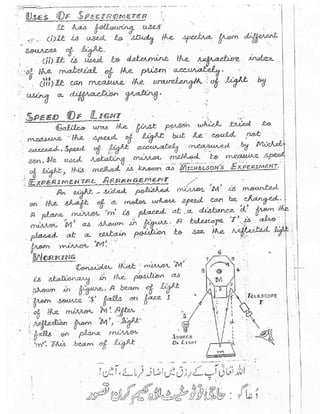 USES OF SPECTROMETER
It has following uses
(i) It is used to study the spectra from different
sources of light.
(ii) It is used to determine the refractive index
of the material of the prism accurately.
(iii) It can measure the wavelength of light by
using a diffraction grating.
SPEED OF LIGHT
Galileo was the first person which tried to
measure the speed of light but he could not
succeed. Speed of light accurately measured by Michel-
son. He used rotating mirror method to measure speed
of light, this method is known as MICHELSON'S EXPERIMENT.
EXPERIMENTAL ARRANGEMENT
An eight-sided polished mirror 'M' is mounted
on the shaft of a motor whose speed can be changed.
A plane mirror 'm' is placed at a distance 'd' from the
mirror 'M' as shown in figure. A telescope 'T' is also
placed at a certain position to see the reflected light
from mirror 'M'.
WORKING
Consider that mirror 'M'
is stationary in the position as
shown in figure. A beam of light
from source 'S' falls on face 1
of the mirror 'M'. After
reflection from 'M', light
falls on plane mirror
'm'. This beam of light
M
TELESCOPE
T
S
SOURCE
OF LIGHT
m
اللہ تعالیٰ آپ کے رزق میں اضافہ فرمائے، آمین!
دعا گو: حاجی فوٹو سٹیٹ اڈہ کھیم کرن قصور